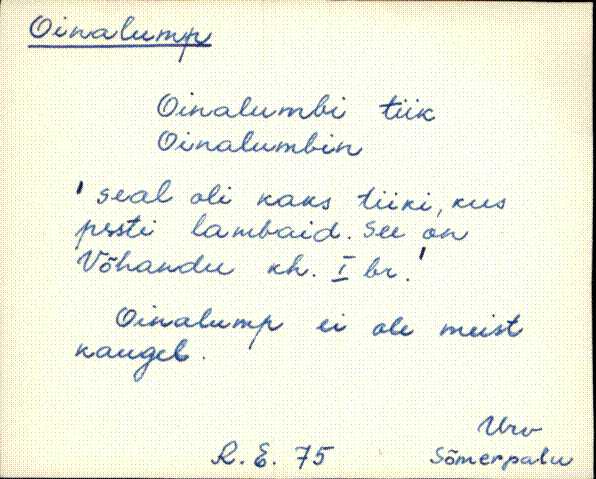 Oinalump
Oinalumbi tiik
Oinalumbin
'seal oli kaks tiiki, kus
pesti lambaid. See on
Võhandu kh. I br.'
Oinalump ei ole meist
kaugel.
Urv
R. E. 75 Sõmerpalu